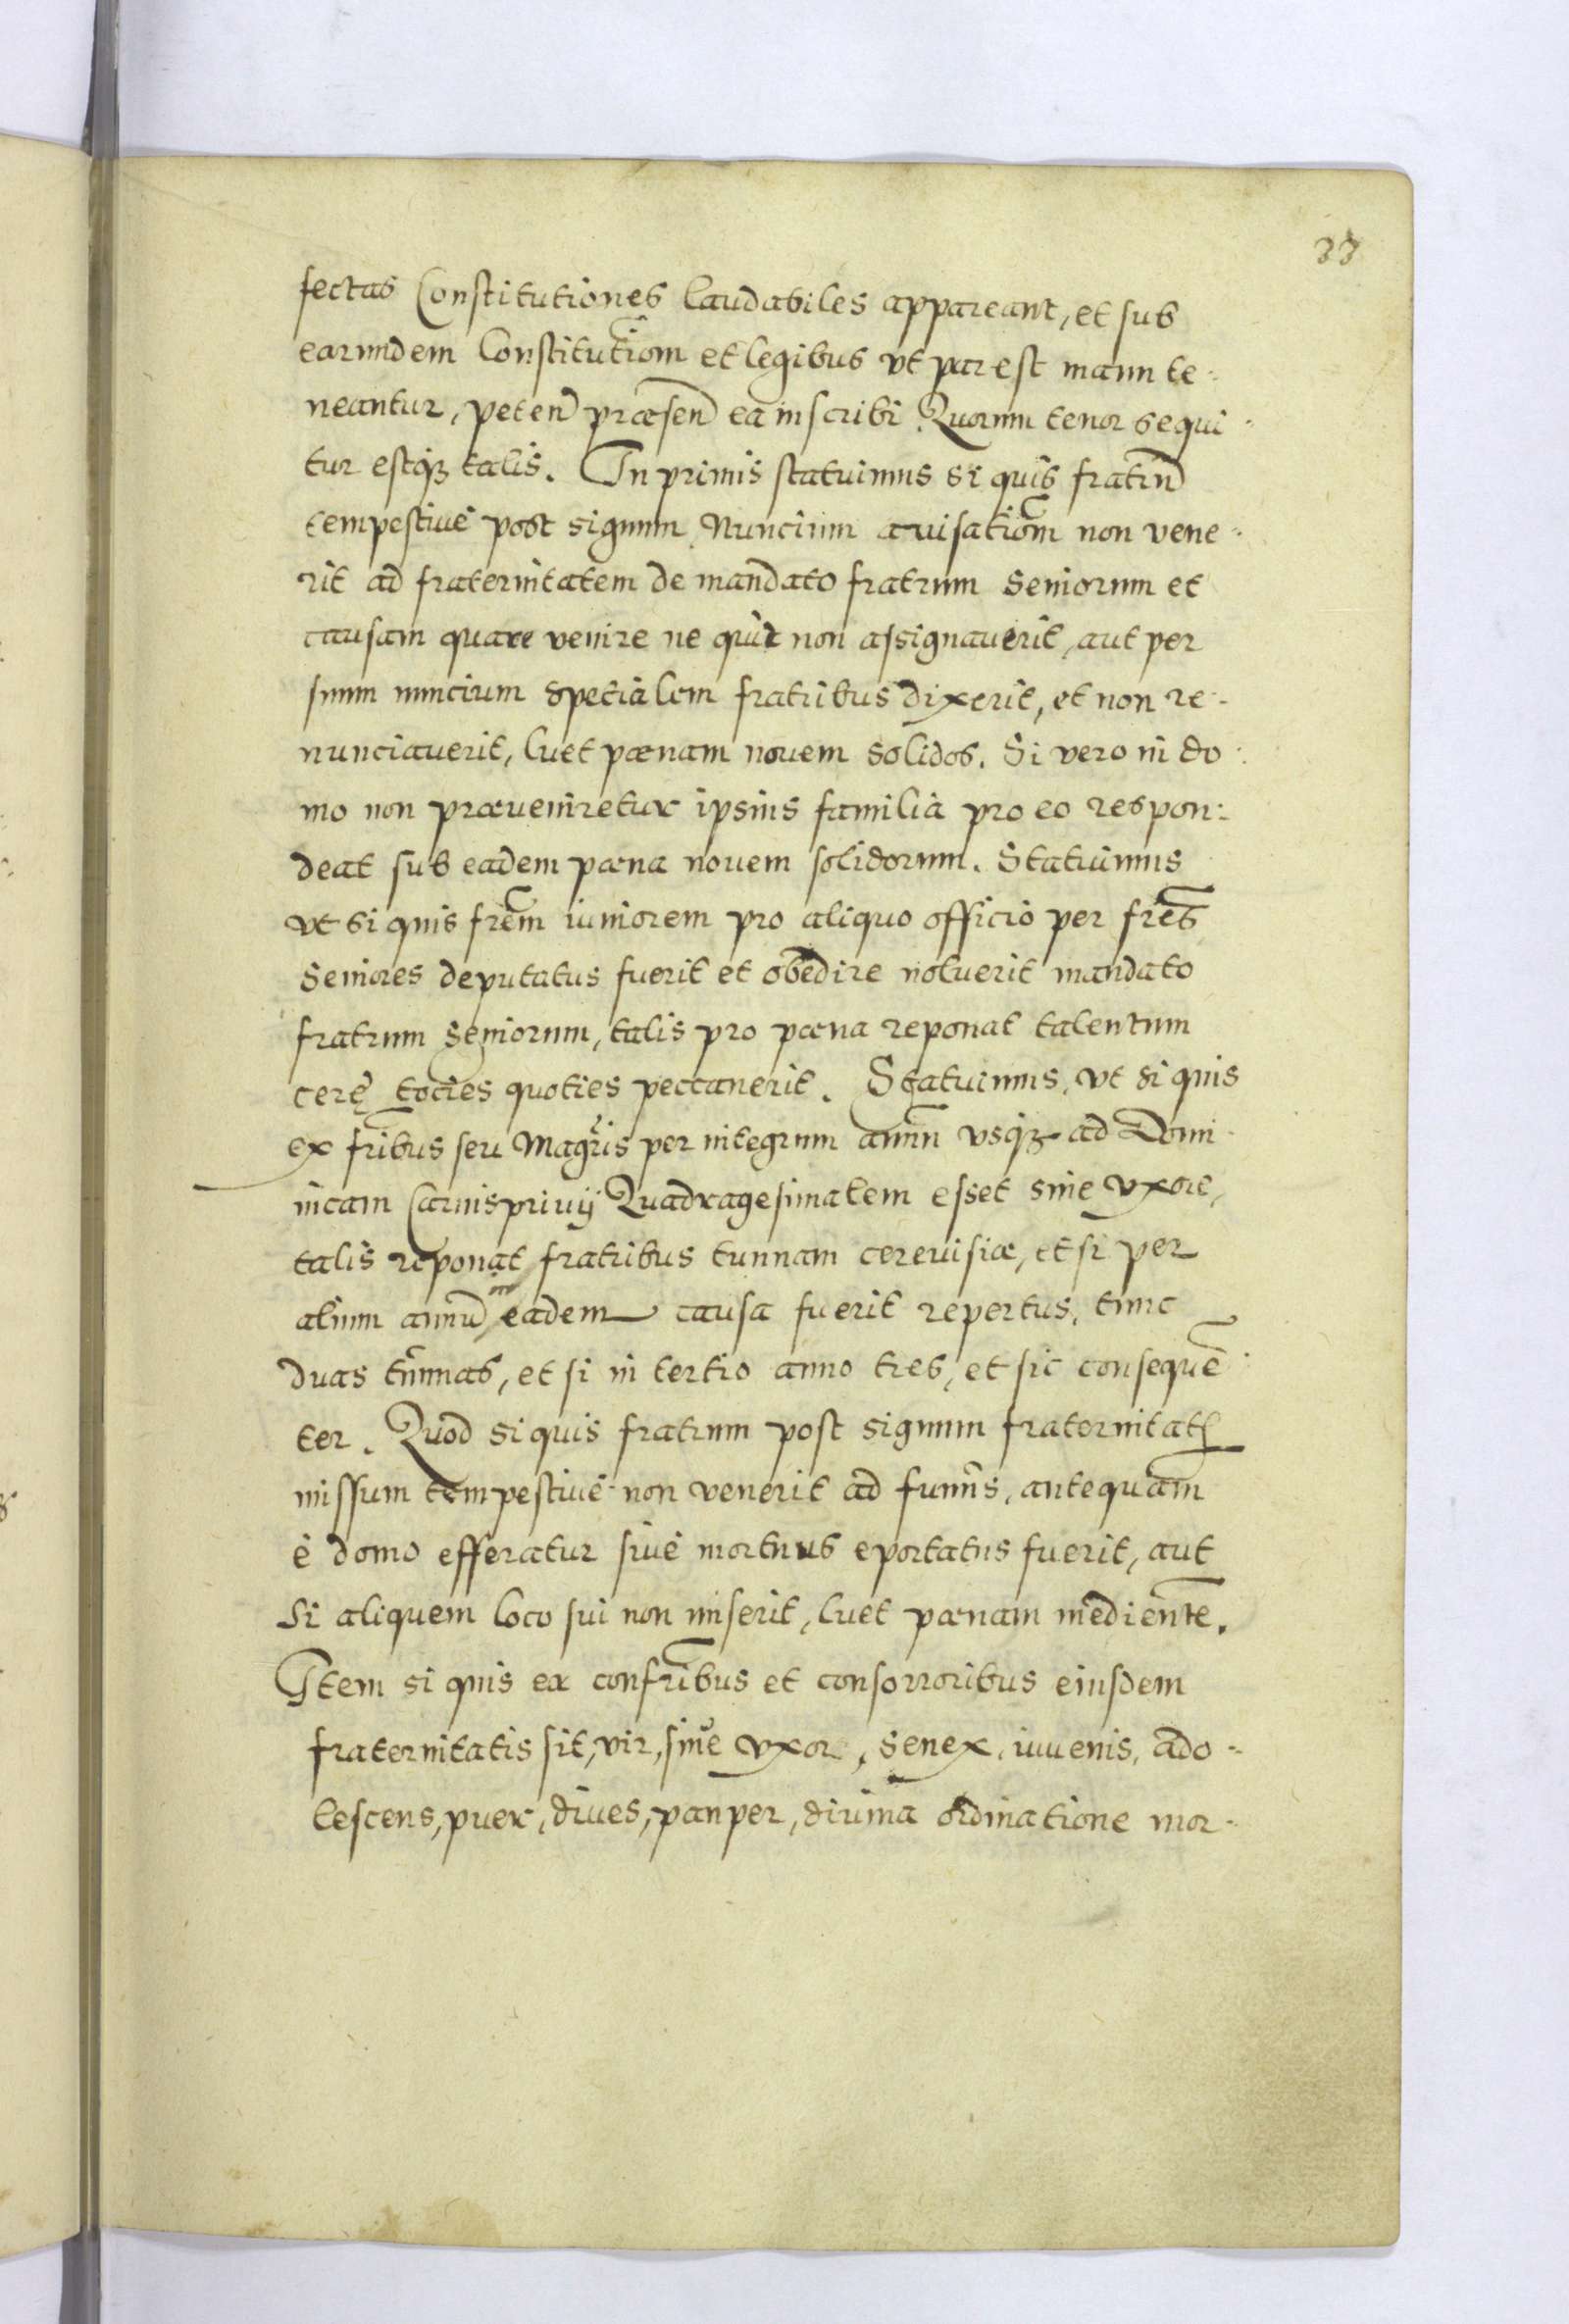 33
fectas Constitutiones laudabiles appareant, et sub
earundem Constitution̄m et legibus vt par est manu te-
neantur, peteñ præseñ ea inscribi. Quorum tenor sequi-
tur estq₃ talis. In primis statuimus si quis fratrū
tempestiue post signum Nuncium auisatiom̄ non vene-
rit ad fraternitatem de mandato fratrum Seniorum et
causam quare venire ne quit non assignauerit, aut per
suum nuncium specialem fratribus dixerit, et non re-
nunciauerit, luet pœnam nouem solidos. Si vero in do-
mo non præueniretur ipsius familia pro eo respon:
deat sub eadem pœna nouem solidorum. Statuimus
vt si quis fr̄em iuniorem pro aliquo officio per fr̄es
Seniores deputatus fuerit et obedire noluerit mandato
fratrum Seniorum, talis pro pœna reponat talentum
cerę toties quoties peccauerit. Statuimus, vt si quis
ex fr̄ibus seu Magr̄is per integrum annū vsq₃ ad Domi-
nicam Carnispriuij Quadragesimalem esset sine vxore,
talis reponat fratribus tunnam cereuisiæ, et si per
alium annū in eadem causa fuerit repertus, tunc
duas tunnas, et si in tertio anno tres, et sic consequē-
ter. Quod si quis fratrum post signum fraternitatꝭ
missum tempestiue non venerit ad funus, antequam
è domo efferatur siue mortuus eportatus fuerit, aut
si aliquem loco sui non miserit, luet pœnam medien̄te.
Item si quis ex confr̄ibus et consorroribus eiusdem
fraternitatis sit, vir, siue vxor, senex, iuuenis, ado-
lescens, puer, diues, pauper, diuina ordinatione mor-